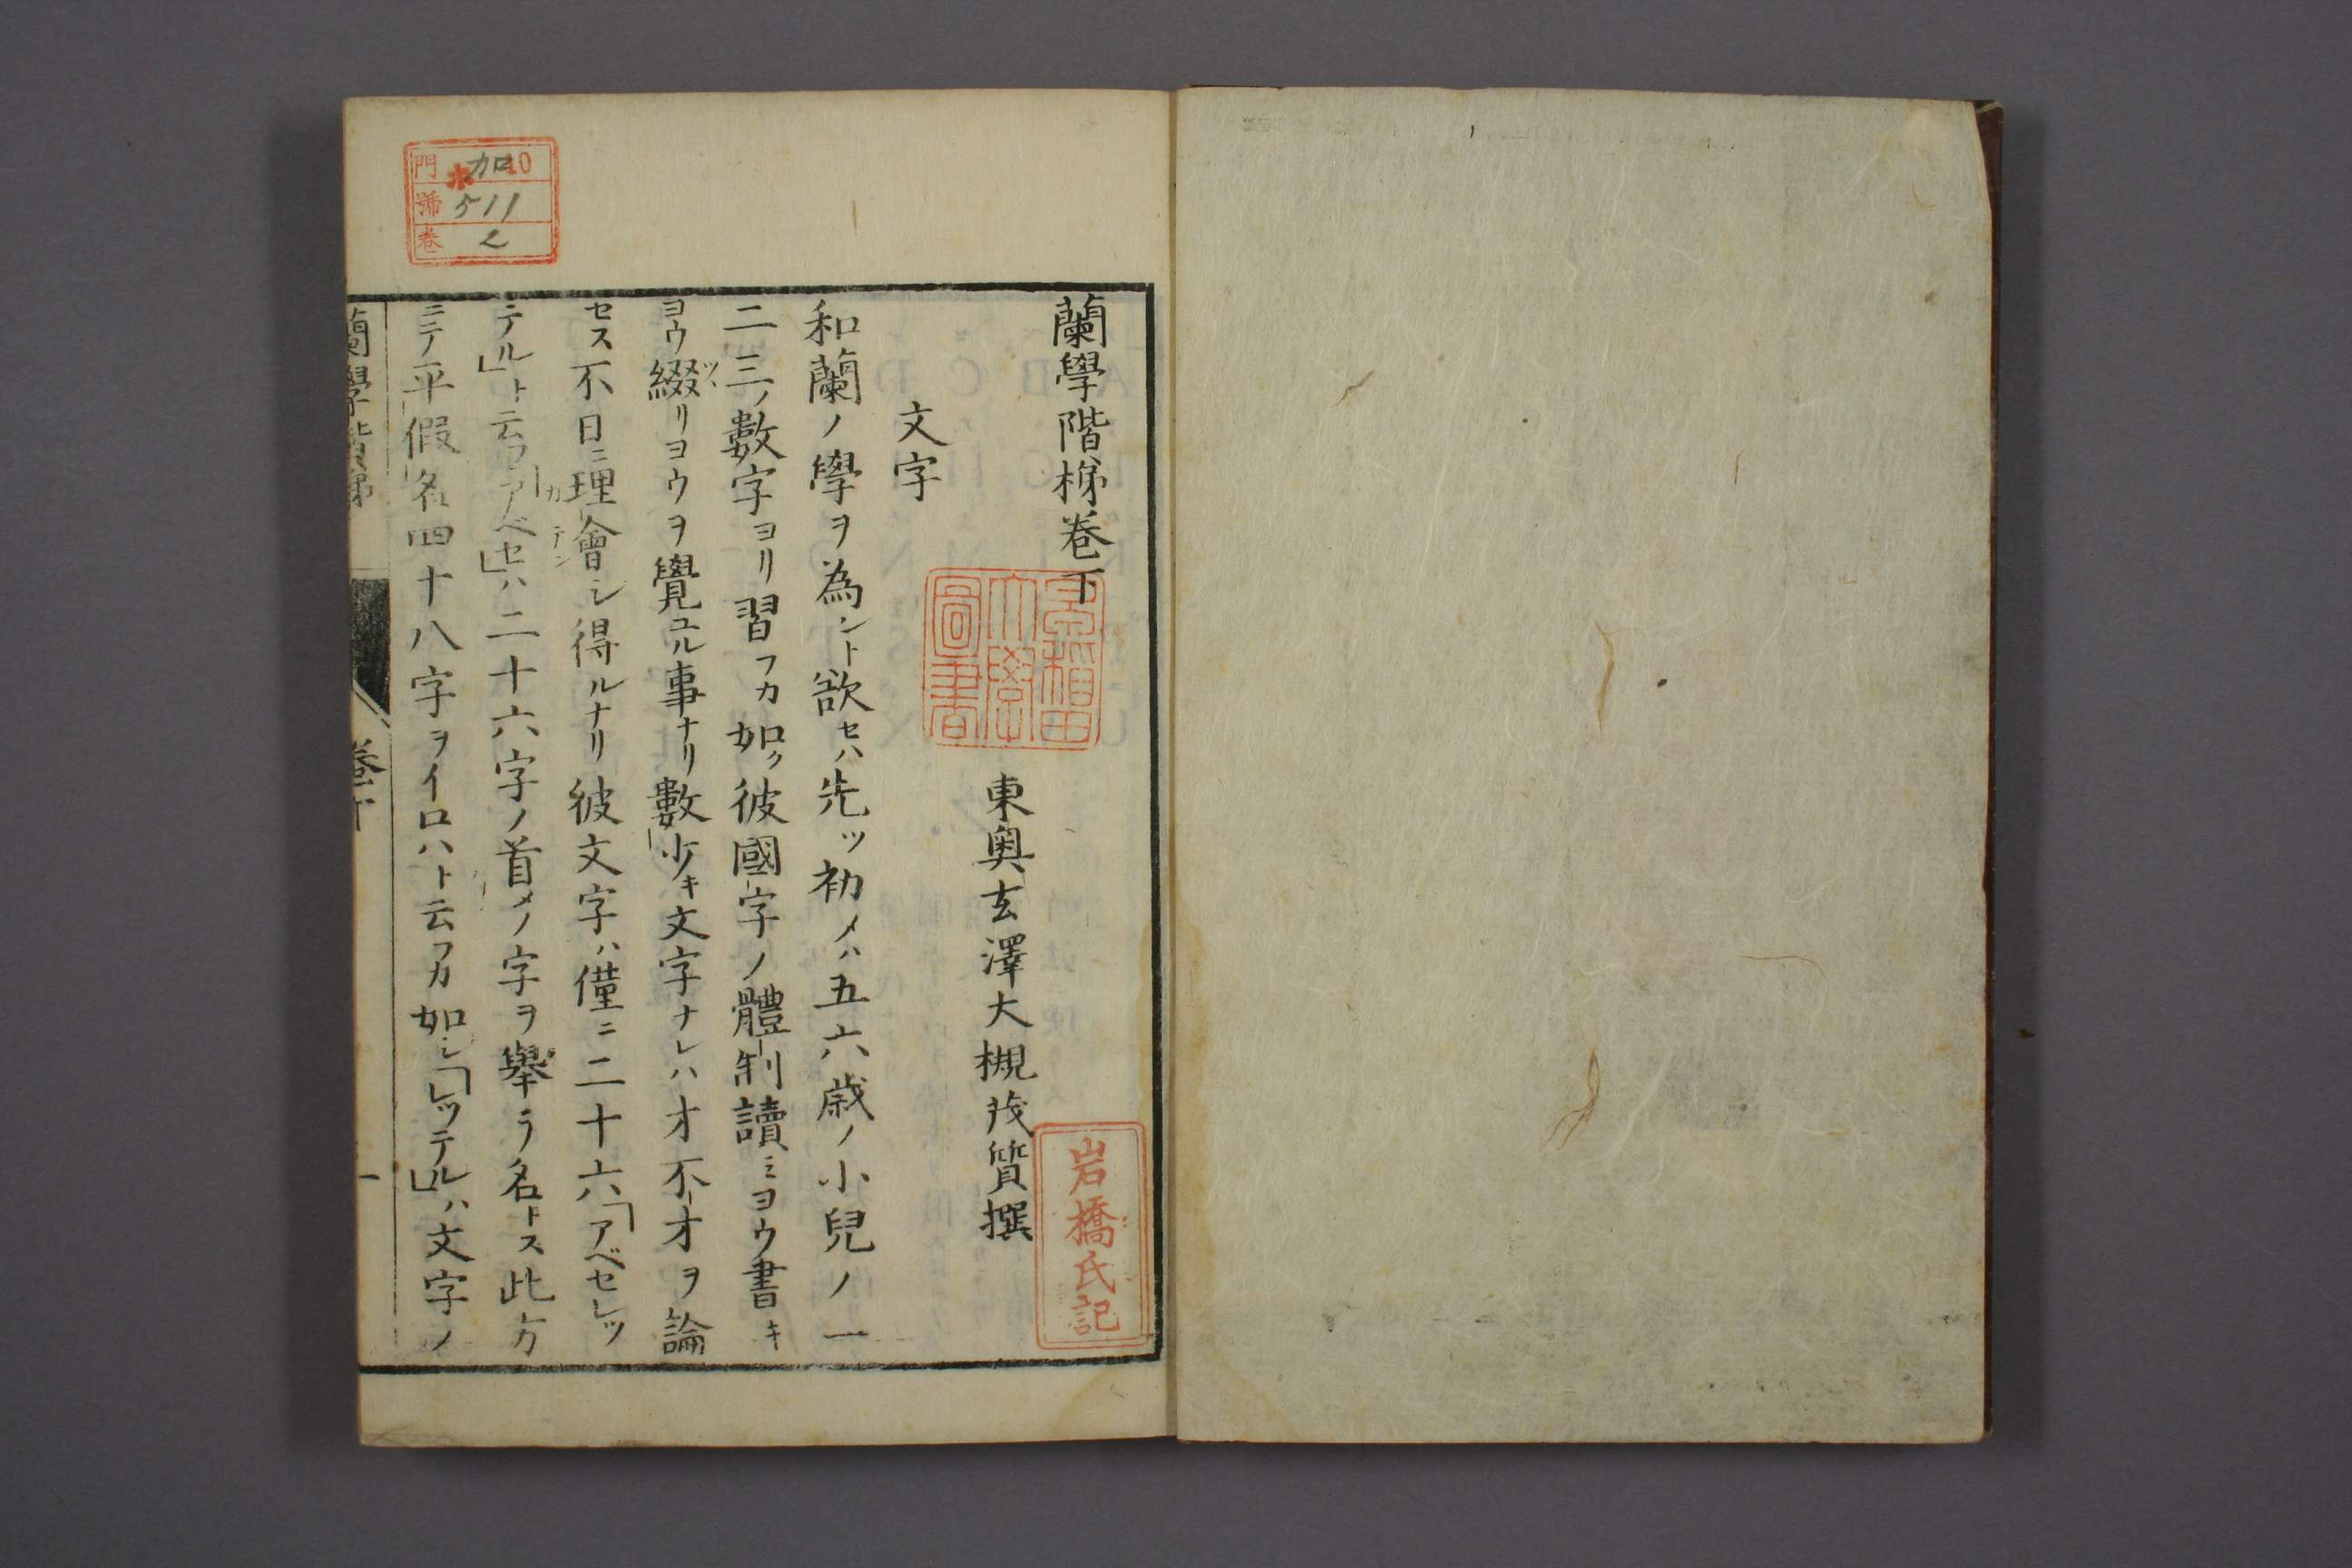 蘭學階梯卷下
東奥玄澤大槻茂質撰
文字
和蘭ノ學ヲ為ント欲セハ先ツ初メハ五六歳ノ小兒ノ一
二三ノ數字ヨリ習フカ如ク彼國字ノ體制讀ミヨウ書キ
ヨウ綴リヨウヲ覺ユル事ナリ數少キ文字ナレハ才不才ヲ論
セス不日ニ理會シ得ルナリ彼文字ハ僅ニ二十六「アベセレッ
テル」ト云フ「アベセ」ハ二十六字ノ首メノ字ヲ舉ラ名トス此方
ニテ平假名四十八字ヲイロハト云フカ如シ「レッテル」ハ文字ノ
蘭學階梯
卷下
一
門 加10
號 511
卷 2
早稲田大學圖書
岩橋氏記